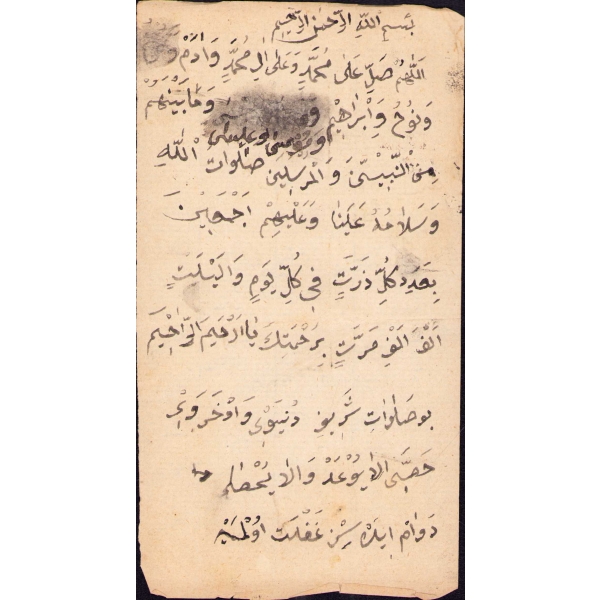 بِسْمِ اللّٰهِ الرَّحْمٰنِ الرَّحِيمِ
اَللّٰهُمَّ صَلِّ عَلٰى مُحَمَّدٍ وَعَلٰى اٰلِ مُحَمَّدٍ وَاٰدَمْ
وَنُوحُ وَاِبْرَاهِيْمَ وَمُوسٰى وَعِيسٰى وَمَابَيْنَهُمْ
مِنَ النَّبِيّينَ وَالْمُرْسَلِينَ صَلَوَاتُ اللّٰهِ
وَسَلَامُهُ عَلَيْنَا وَعَلَيْهِمْ اَجْمَعِيْنَ
بِعَدَدِ كُلِّ ذَرَّتٍ فِى كُلِّ يَوْمٍ وَاليْلَتٍ
اَلْفَ اَلْفِ مَرَّتٍ بِرَحْمَتِكَ يَااَرْحَمِ الرَّاحِمِيَمْ
بو صلوات شَرِيف دُنْيَوِى وَاُوْخَرَوِى
حَصَبِّى لَايُوْعَدْ وَالَا يُحْصٰا
دَوَامْ ايدَه سِنْ غَفْلَتْ اُولْمَيَه